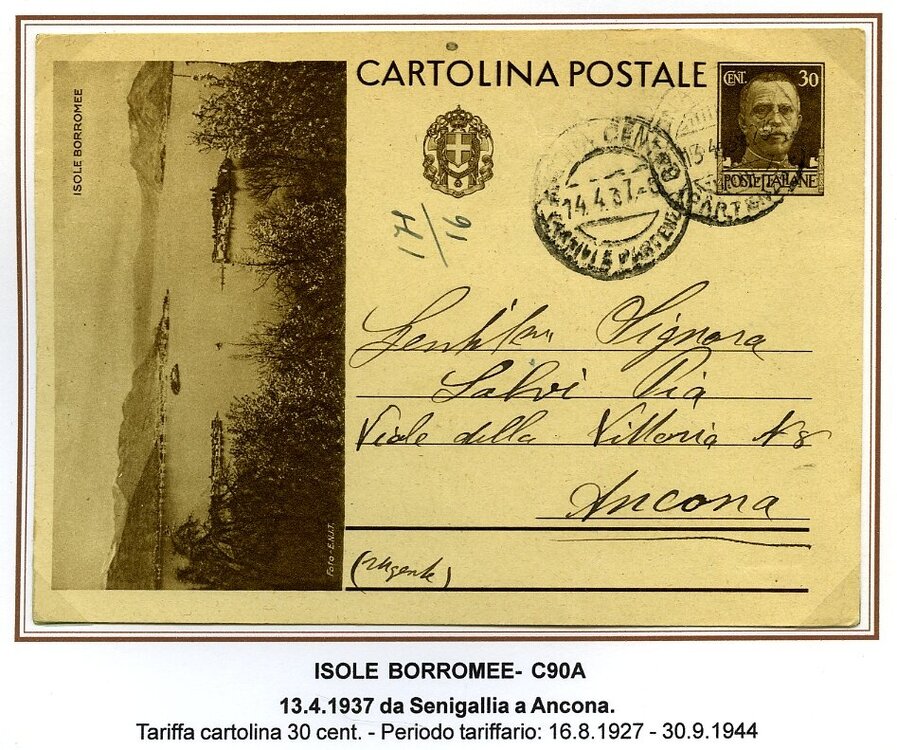 ISOLE BORROMEE
CARTOLINA POSTALE
CENT. 30
POSTE ITALIANE
13.4
14.4.37.
17/16
Signora
Salvi Pia
Viale della Vittoria N 8
Ancona
(Urgente)
Foto - E.N.I.T.
ISOLE BORROMEE- C90A
13.4.1937 da Senigallia a Ancona.
Tariffa cartolina 30 cent. - Periodo tariffario: 16.8.1927 - 30.9.1944